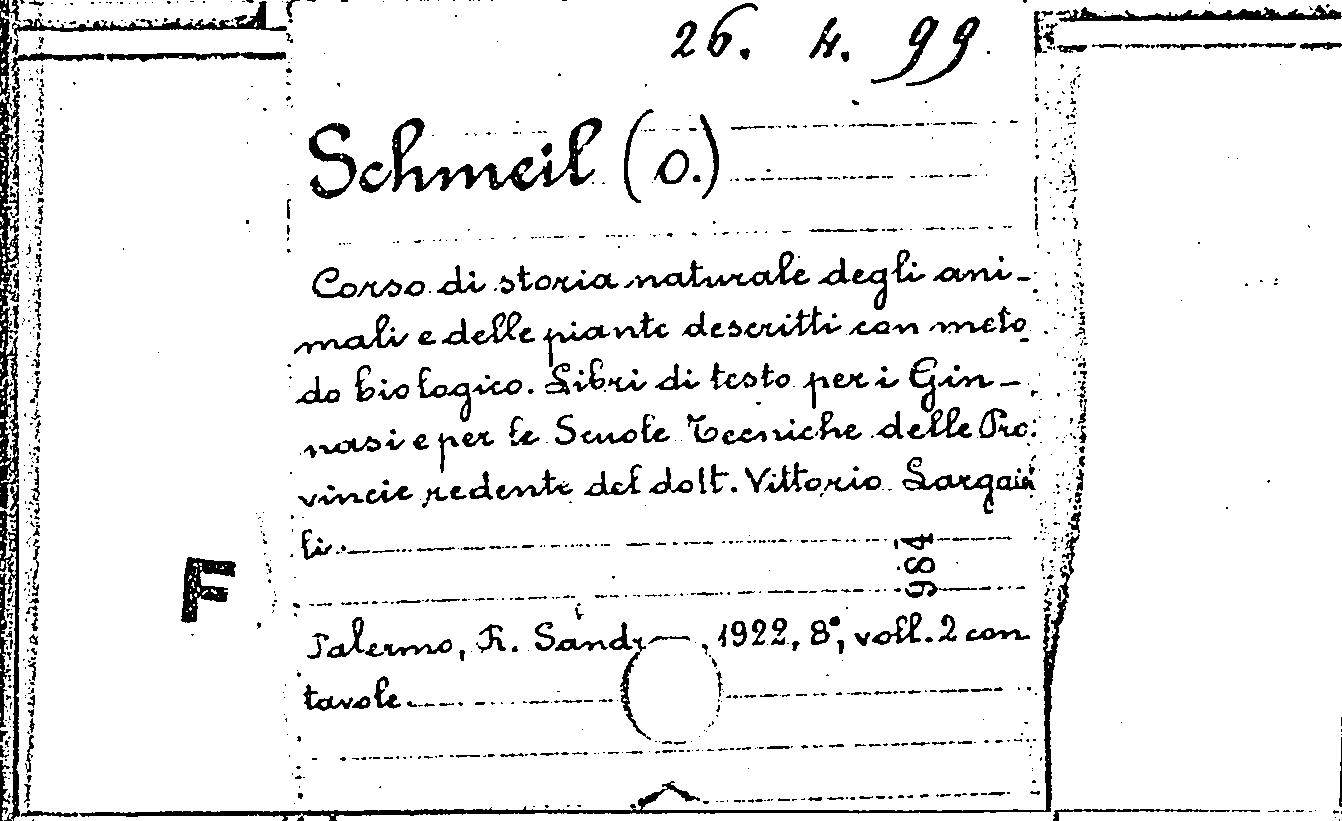 26. 4. 99
Schmeil (O.)
Corso di storia naturale degli ani-
mali e delle piante descritti con meto
do biologico. Libri di testo per i Gin-
nasi e per le Scuole Tecniche delle Pro.
vincie redente del dott. Vittorio Largaiol
li.
984
F
Palermo, R. Sandr , 1922, 8°, voll. 2 con
tavole.